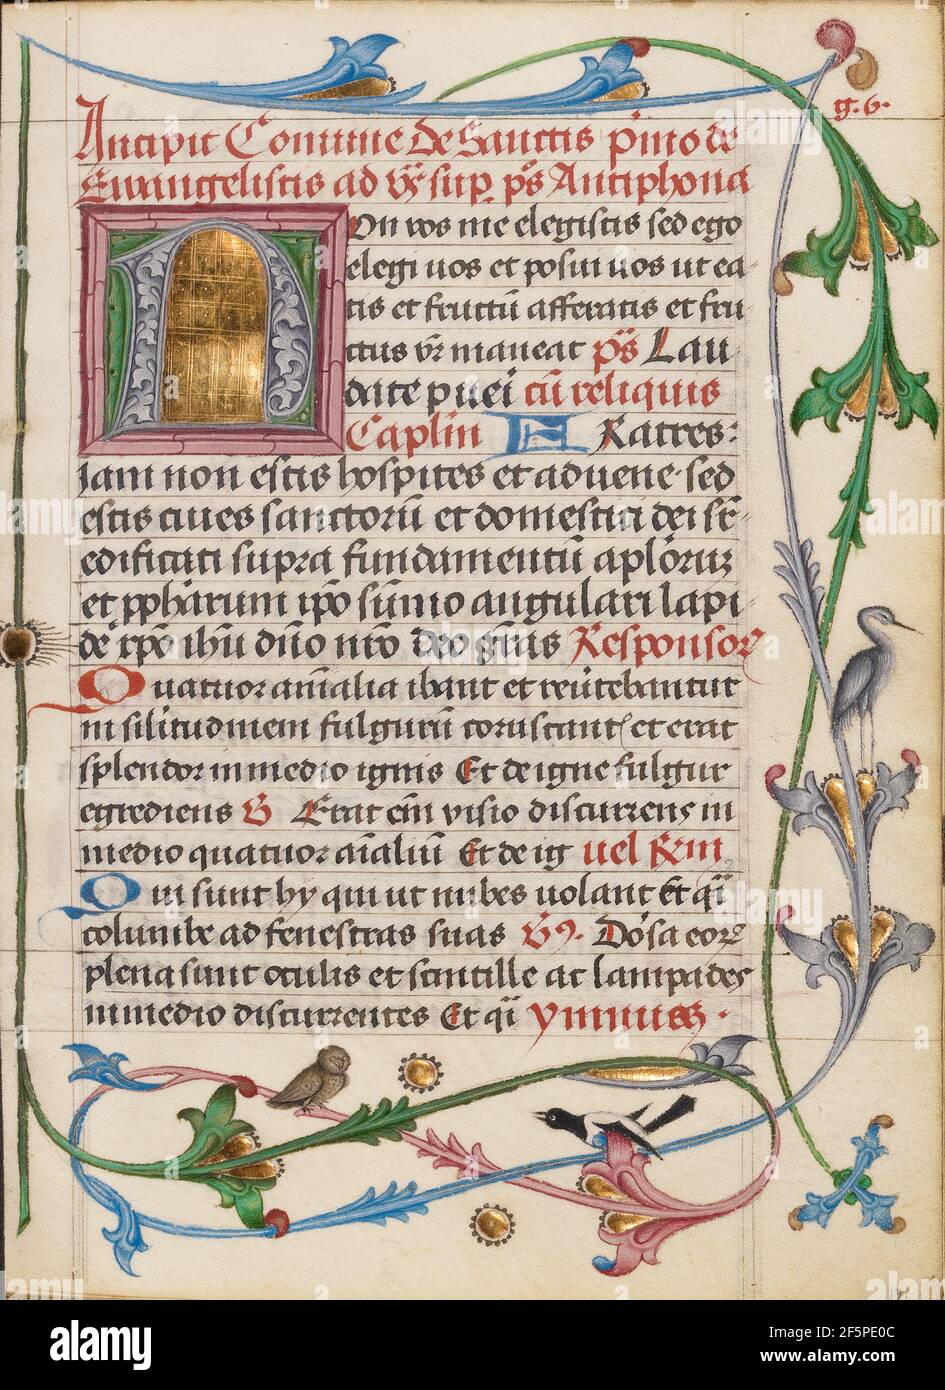 g. 6.
Incipit Comune de Sanctis p̄mo de
Ewangelistis ad vr̄ sup p̄s Antiphona
Non vos me elegistis sed ego
elegi uos et posui uos ut ea-
tis et fructū afferatis et fru
ctus vr̄ maneat p̄s Lau-
date puei cū reliquis
Caplm̄ FRatres:
Iam non estis hospites et aduene · sed
estis ciues sanctorū et domestici dei sr̄
edificati supra fundamentū aplōrū
et pphārum ip̄o sūmo angulari lapi
de xp̄o ihū dn̄o nr̄o deo grās Responsor
Quatuor anīalia ibant et reūtebantut
in silitudinem fulgurū coruscant et erat
splendor in medio ignis Et de igne fulgur
egrediens Erat em̄ visio discurrens in
medio quatuor aīaliū Et de ig uel Rm
Qui sunt hy qui ut nubes uolant Et q̄i
columbe ad fenestras suas V9. Dōsa eor
plena sunt oculis et scintille ac lampades
in medio discurrentes Et q̄i ymnus
alamy
Image ID: 2F5PE0C
www.alamy.com